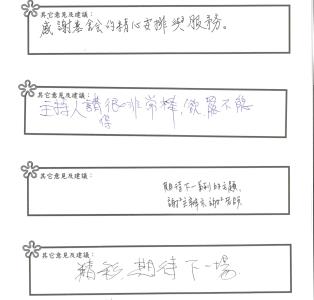 其它意見及建議：
感謝基金會的精心安排與服務。
其它意見及建議：
主持人講得很非常棒，欲罷不能
其它意見及建議：
期待下一系列的主題，
謝謝主辦方，謝謝老師
其它意見及建議：
精彩，期待下一場